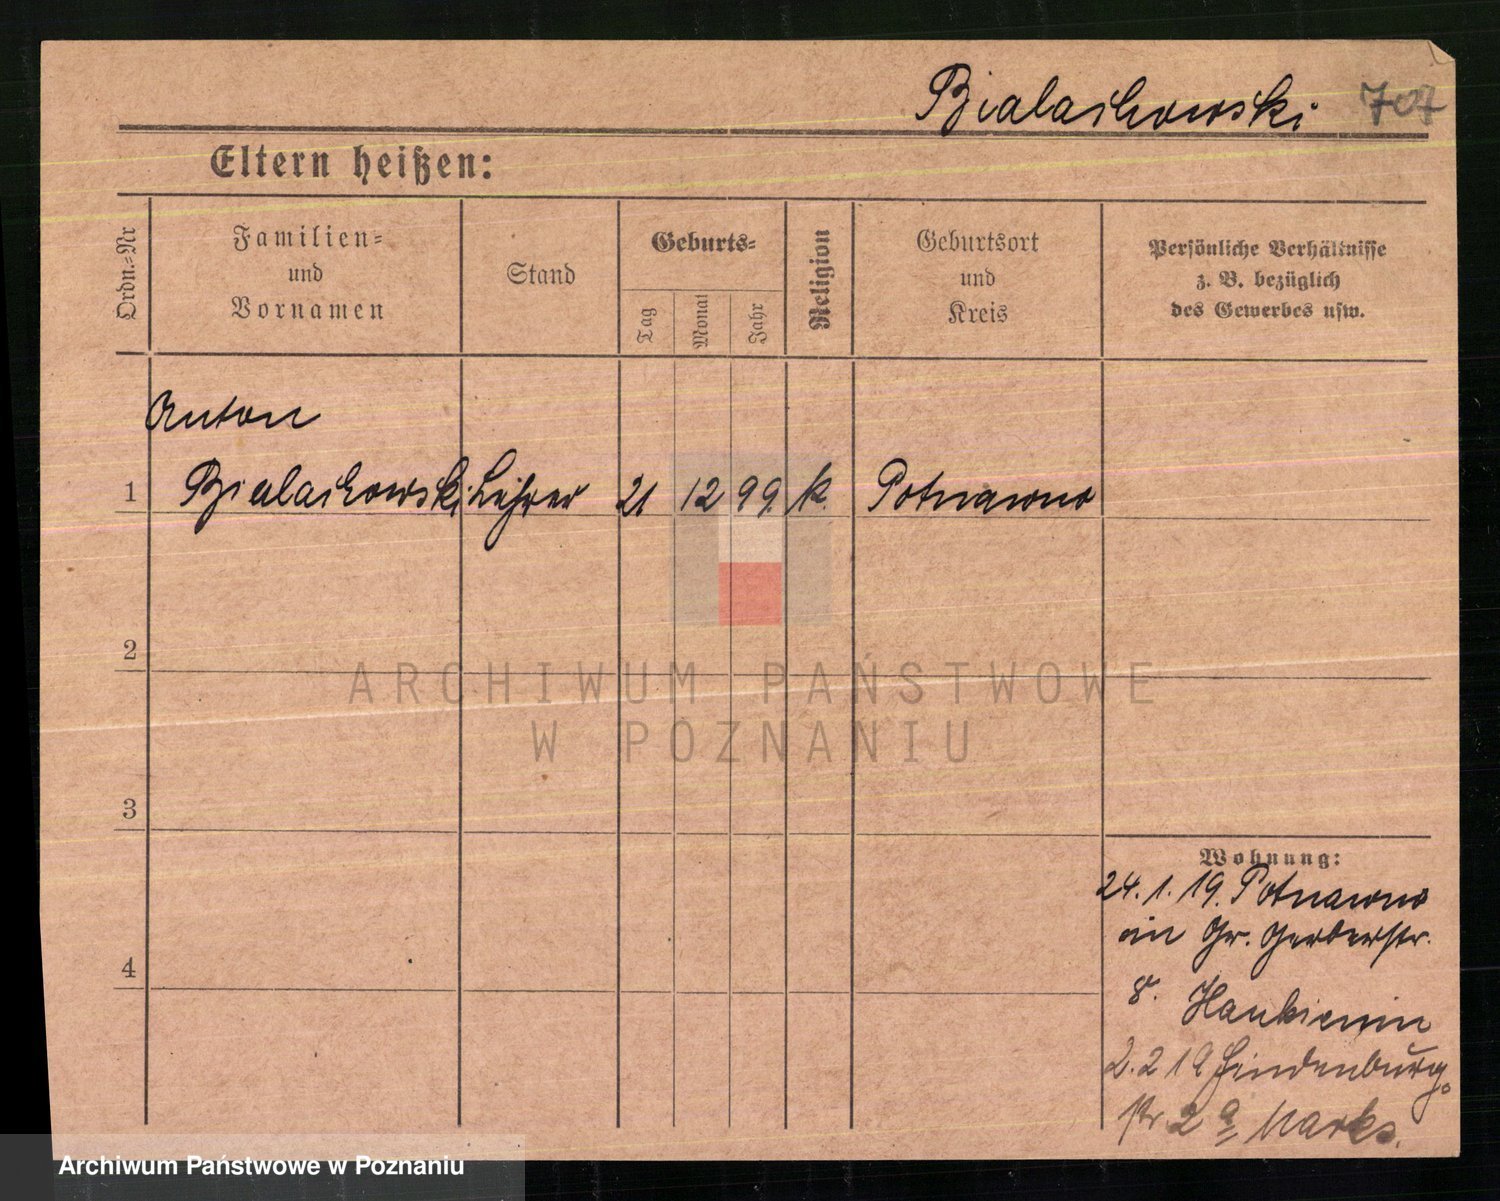 Bialachowski 707
Eltern heißen:
Ordn.=Nr
Familien=
und
Vornamen
Stand
Geburts=
Tag
Monat
Jahr
Religion
Geburtsort
und
Kreis
Persönliche Verhältnisse
z. B. bezüglich
des Gewerbes usw.
Anton
1 Bialachowski Lehrer 21 12 99. k.
2
3
4
ARCHIWUM PAŃSTWOWE
W POZNANIU
Wohnung:
24. 1. 19.
Gr. Gerberstr.
8.
2. 2 19 Hindenburg
str 2a
Archiwum Państwowe w Poznaniu